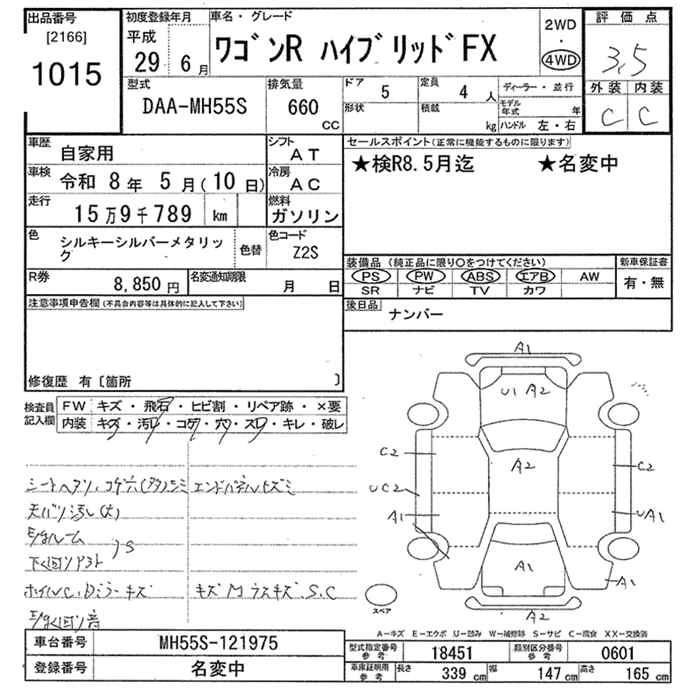 出品番号
[2166]
1015
初度登録年月
平成
29 6月
車名・グレード
ワゴンR ハイブリッドFX
2WD
・
4WD
評価点
3.5
外装 内装
C C
型式
DAA-MH55S
排気量
660
CC
ドア
5
形状
定員
4 人
積載
kg
ディーラー・並行
モデル年式 年
ハンドル 左・右
車歴
自家用
シフト
AT
車検
令和 8年 5月(10日)
冷房
AC
走行
15万9千789 km
燃料
ガソリン
色
シルキーシルバーメタリック
色替
色コード
Z2S
セールスポイント(正常に機能するものに限ります)
★検R8.5月迄 ★名変中
装備品(純正品に限り○をつけてください)
PS PW ABS エアB AW
SR ナビ TV カワ
新車保証書
有・無
後日品
ナンバー
R券
8,850円
名変通知期限
月 日
注意事項申告欄(不具合内容等は具体的に記入して下さい)
修復歴 有〔箇所 〕
検査員
記入欄
FW キズ・飛石・ヒビ割・リペア跡・×要
内装 キズ・汚レ・コゲ・穴・スレ・キレ・破レ
キズ
S.C
A1
U1 A2
A2
C2
UC2
A1
C2
UA1
A1
A2
スペア
A－キズ E－エクボ U－凹み W－補修跡 S－サビ C－腐食 XX－交換済
車台番号
MH55S-121975
登録番号
名変中
型式指定番号
参考
18451
類別区分番号
参考
0601
車庫証明用
参考
長さ 339cm 幅 147cm 高さ 165cm